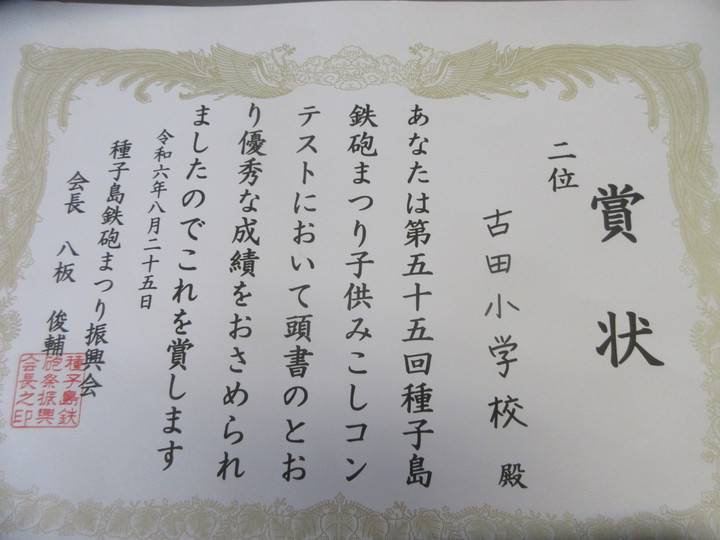 賞状
二位
古田小学校 殿
あなたは第五十五回種子島
鉄砲まつり子供みこしコン
テストにおいて頭書のとお
り優秀な成績をおさめられ
ましたのでこれを賞します
令和六年八月二十五日
種子島鉄砲まつり振興会
会長 八板 俊輔
種子島鉄
砲祭振興
会長之印